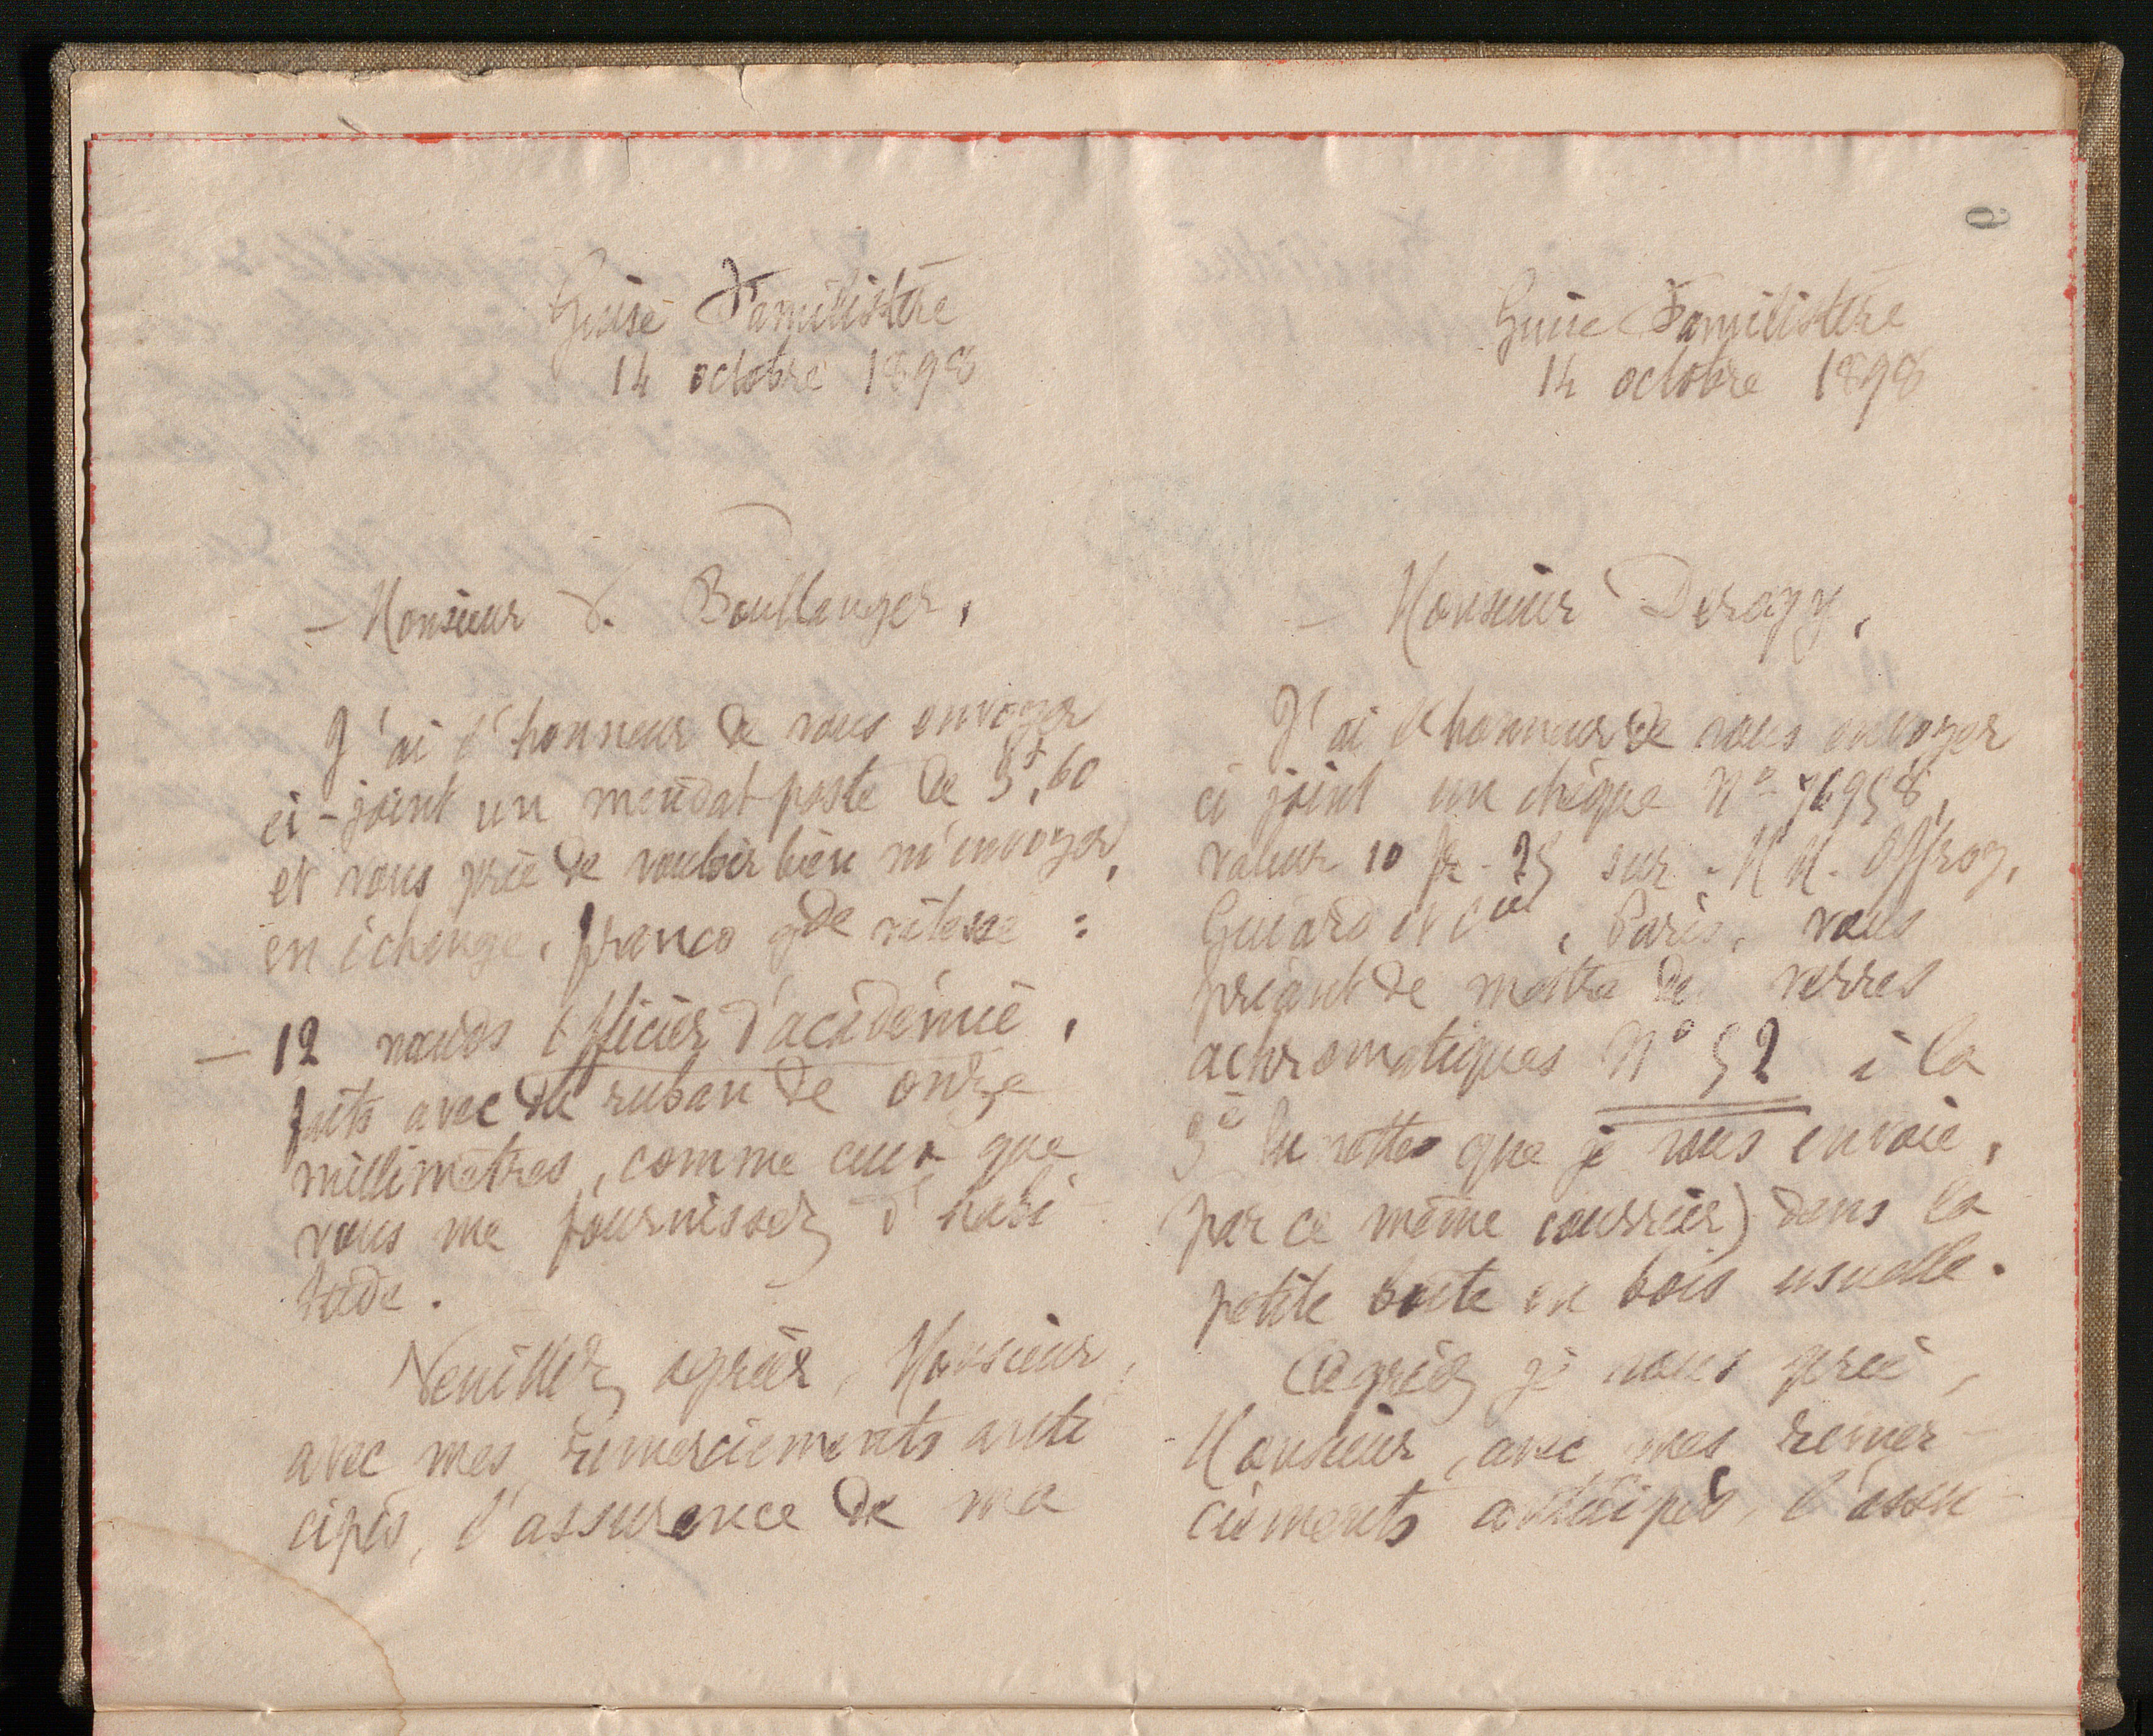 Guise Familistère
14 octobre 1898
Monsieur Boullanger,
J'ai l'honneur de vous envoyer
ci-joint un mandat-poste de 60
et vous prie de vouloir bien m'envoyer,
en échange, franco gde vitesse :
— 12 nœuds officier d'académie,
faits avec du ruban de onze
millimètres, comme ceux que
vous me fournissez d'habi-
tude.
Veuillez agréer, Monsieur,
avec mes remerciements anti
cipés, l'assurance de ma
6
Guise Familistère
14 octobre 1898
Monsieur Derogy,
J'ai l'honneur de vous envoyer
ci joint un chèque No 76958,
valeur 10 fr. 25 sur M.M. Offroy,
Guiard et Cie, Paris, vous
priant de mettre des verres
achromatiques No 52 à la
lunettes que je vous envoie,
(par ce même courrier) dans la
petite boîte en bois usuelle.
Agréez je vous prie,
Monsieur, avec mes remer-
ciements anticipés, l'assu-